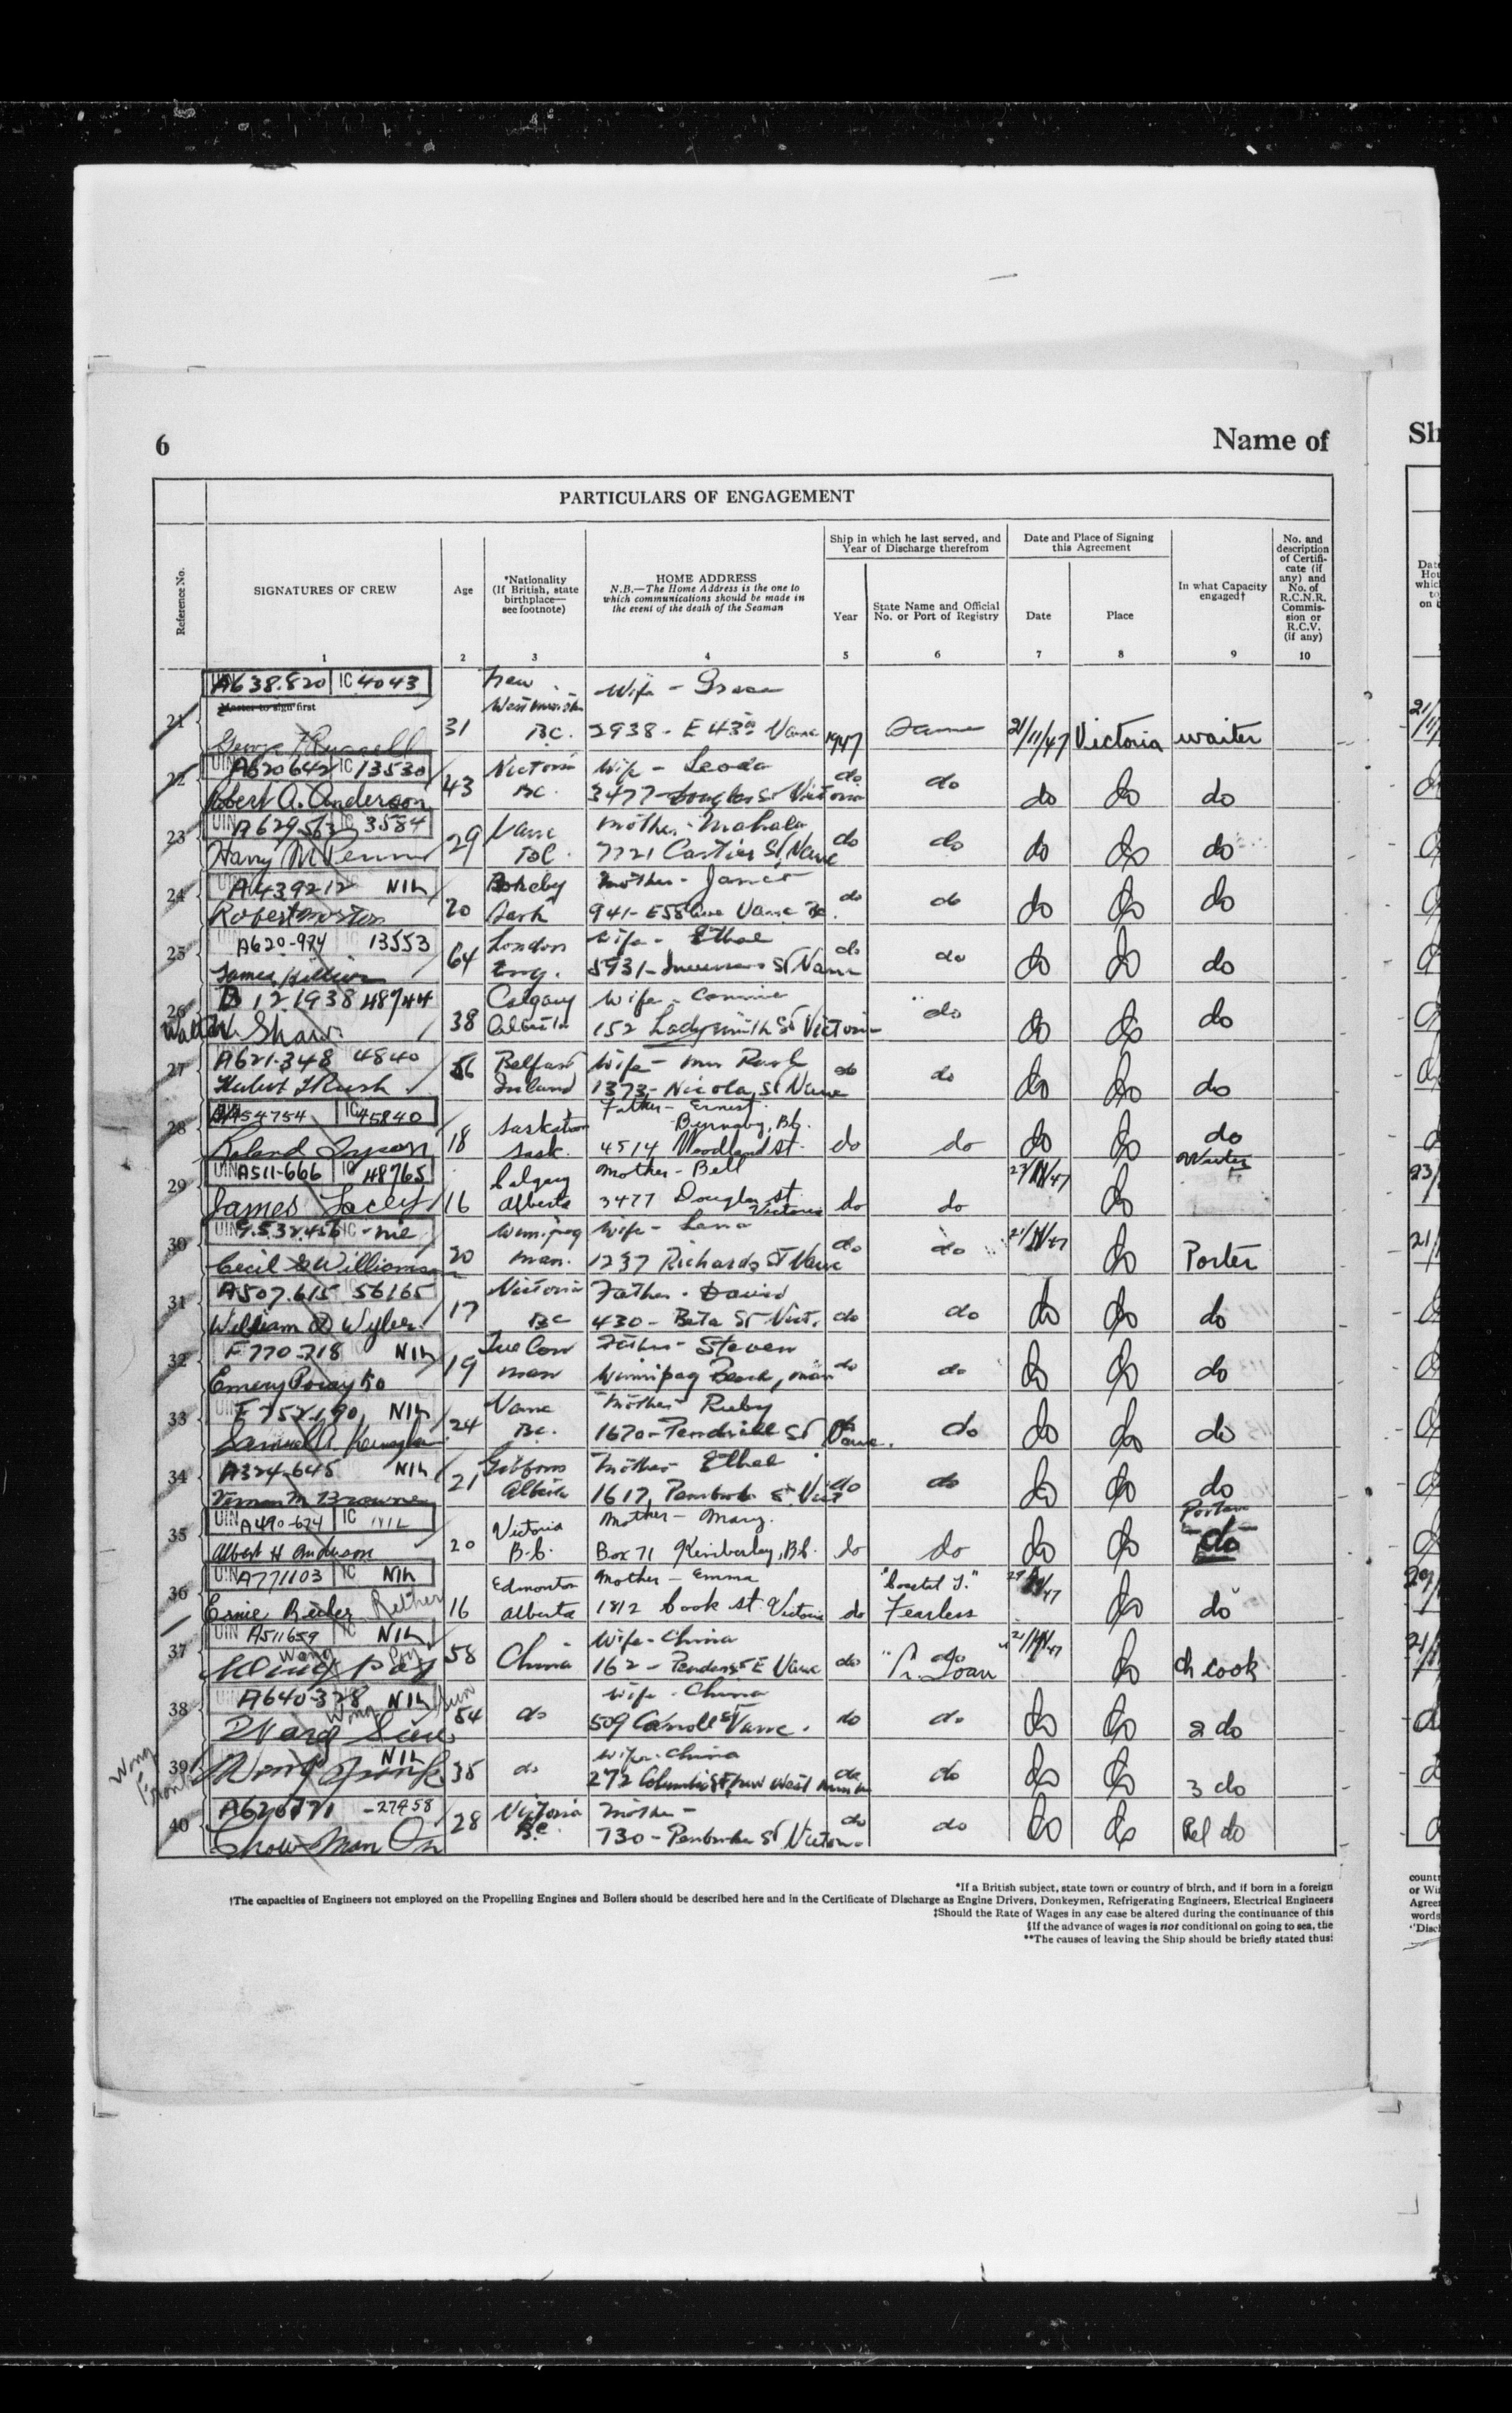 6
Name of
PARTICULARS OF ENGAGEMENT
Reference No.
SIGNATURES OF CREW
Age
*Nationality
(If British, state
birthplace—
see footnote)
HOME ADDRESS
N.B.—The Home Address is the one to
which communications should be made in
the event of the death of the Seaman
Ship in which he last served, and
Year of Discharge therefrom
Year
State Name and Official
No. or Port of Registry
Date and Place of Signing
this Agreement
Date
Place
In what Capacity
engaged†
No. and
description
of Certifi-
cate (if
any) and
No. of
R.C.N.R.
Commis-
sion or
R.C.V.
(if any)
1 2 3 4 5 6 7 8 9 10
A638.820 IC 4043 New Wife - Grace
Master to sign first
21 31 B.C. 2938 - E 43rd Vanc 1947 Same 21/11/47 Victoria waiter
UIN A620642 IC 13530 Victoria Wife - Leoda
22 Robert A. Anderson 43 BC. 3477 - Douglas St Victoria do do do do do
UIN A629563 3584 Vanc Mother - Mahala
23 Harry 29 BC. 7721 Cartier St, Vanc do do do do do
A439212 NIL Mother - Janet
24 Robert Morton 20 Sask 941 - E 58 Ave Vanc BC. do do do do do
A620-974 13553 London Wife - Ethel
25 James 64 Eng. 5931 - St Vanc do do do do do
B 121938 48744 Calgary Wife - Connie
26 Walter Shaw 38 Alberta 152 Ladysmith St Victoria do do do do
A621.348 4840 Belfast Wife - Mrs
27 Rush 56 Ireland 1373 - Nicola St Vanc do do do do do
A54754 IC 45840 Father - Ernest
28 Roland 18 Saskatoon Sask. 4514 Woodland St. Burnaby, B.C. do do do do do
UIN A511-666 IC 48765 Calgary Mother - Bell 23/11/47 Waiter
29 James Lacey 16 Alberta 3477 Douglas St. Victoria do do do
UIN IC - nil Winnipeg Wife - Lana 21/11/47
30 Cecil G Williamson 20 Man. 1237 Richards St Vanc do do do Porter
A507.615 56165 Victoria Father - David
31 William D Wyler 17 BC 430 - Beta St Vict. do do do do do
F770-718 NIL Father - Steven
32 Emery 19 Man Winnipeg Beach, Man do do do do do
UIN F 752190 NIL Vanc Mother Ruby
33 24 BC. 1670 - Pendrell St Vanc. do do do do do
A324-645 NIL Gibbons Mother Ethel
34 Vernon M Browne 21 Alberta 1617, Pembroke St Vict do do do do do
UIN A490-674 IC NIL Victoria Mother - Mary. Porter
35 Albert H Anderson 20 B.C. Box 71 Kimberley, B.C. do do do do do
UIN A771103 IC NIL Edmonton Mother - Emma "Coastal T."
36 Ernie Reither 16 Alberta 1812 Cook St. Victoria do Fearless do do
UIN A511659 NIL Wife - China 21/11/47
37 Wong Poy 58 China 162 - Pender St E Vanc do do do ch cook
A640-328 NIL Wife - China
38 Wong Sun 54 do 509 Carroll St Vanc. do do do do 2 do
NIL Wife - China
39 Wong 35 do 272 Columbia St, New West do do do do 3 do
A620771 - 27958 Victoria Mother -
40 Chow Man On 28 B.C. 730 - Pembroke St Victoria do do do do Rel do
*If a British subject, state town or country of birth, and if born in a foreign
†The capacities of Engineers not employed on the Propelling Engines and Boilers should be described here and in the Certificate of Discharge as Engine Drivers, Donkeymen, Refrigerating Engineers, Electrical Engineers
‡Should the Rate of Wages in any case be altered during the continuance of this
§If the advance of wages is not conditional on going to sea, the
**The causes of leaving the Ship should be briefly stated thus: